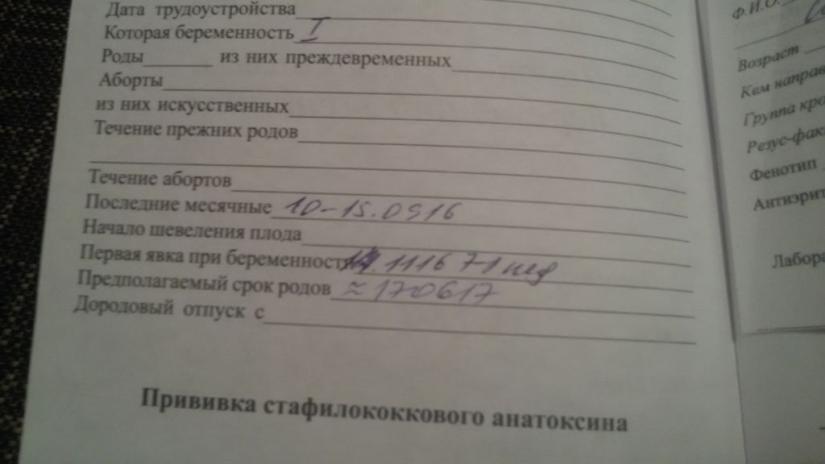 Дата трудоустройства
Которая беременность I
Роды из них преждевременных
Аборты
из них искусственных
Течение прежних родов
Течение абортов
Последние месячные 10-15.0916
Начало шевеления плода
Первая явка при беременност 1116 71 нед
Предполагаемый срок родов ≈ 170617
Дородовый отпуск с
Прививка стафилококкового анатоксина
Ф.И.О.
Возраст
Кем направ
Группа кро
Резус-фак
Фенотип
Антиэрит
Лабора